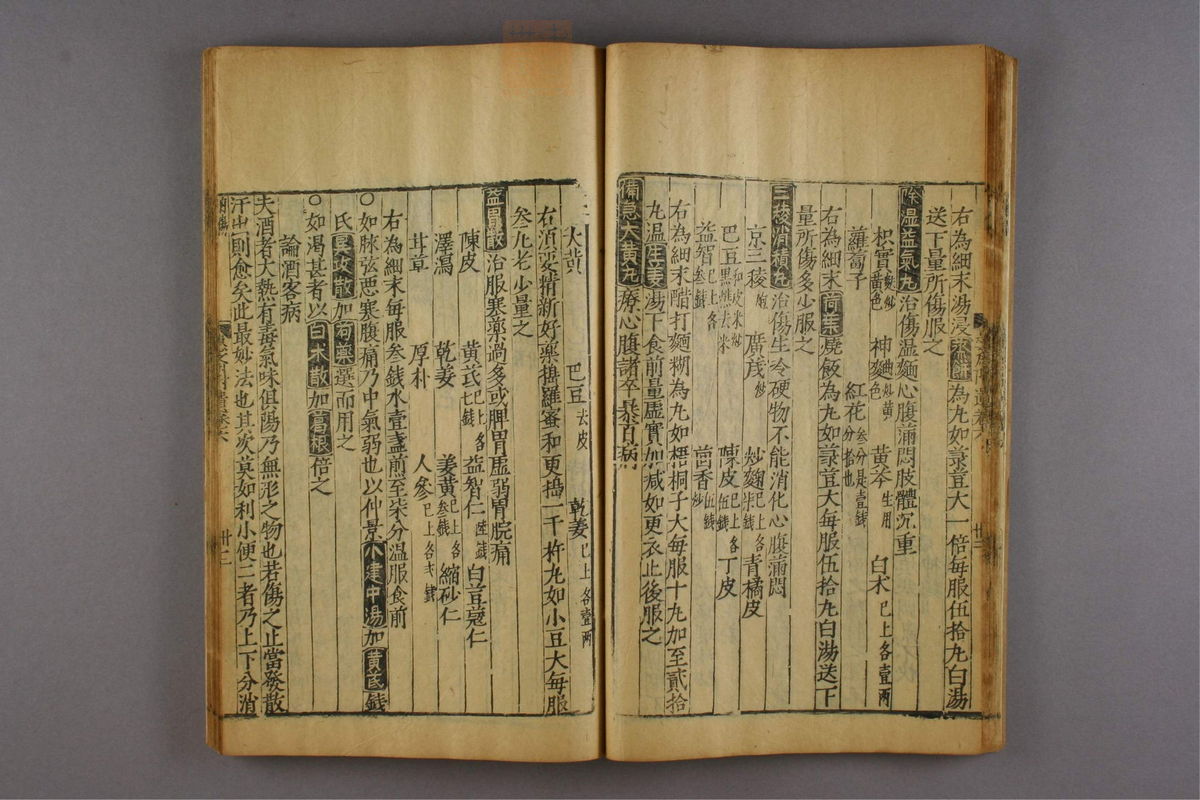 右為細末湯浸蒸餅為丸如菉豆大一倍每服伍拾丸白湯
送下量所傷服之
除温益氣丸治傷温麵心腹滿悶肢體沉重
枳實麩炒黄色 神麴炒黄色 黄芩生用 白术已上各壹兩
蘿蔔子 紅花叁分是壹錢分拾也
右為細末荷葉燒飯為丸如菉豆大每服伍拾丸白湯送下
量所傷多少服之
三稜消積丸治傷生冷硬物不能消化心腹滿悶
京三稜炮 廣茂炒 炒麴已上各柒錢 青橘皮
巴豆和皮米炒黒焦去米 陳皮已上各伍錢 丁皮
益智已上各叁錢 茴香炒
右為細末醋打麵糊為丸如梧桐子大每服十丸加至貳拾
丸温生姜湯下食前量虛實加減如更衣止後服之
備急大黄丸療心腹諸卒暴百病
大黄 巴豆去皮 乾姜已上各壹兩
右須要精新好藥擣羅蜜和更搗一千杵丸如小豆大每服
叁丸老少量之
益胃散治服寒藥過多或脾胃虛弱胃脘痛
陳皮 黄芪已上各七錢 益智仁陸錢 白豆蔻仁
澤瀉 乾姜 姜黄已上各叁錢 縮砂仁
甘草 厚朴 人參已上各弍錢
右為細末每服叁錢水壹盞煎至柒分温服食前
○如脉弦惡寒腹痛乃中氣弱也以仲景小建中湯加黄芪錢
氏異攻散加芍藥選而用之
○如渴甚者以白术散加葛根倍之
論酒客病
夫酒者大熱有毒氣味俱陽乃無形之物也若傷之止當發散
汗出則愈矣此最妙法也其次莫如利小便二者乃上下分消